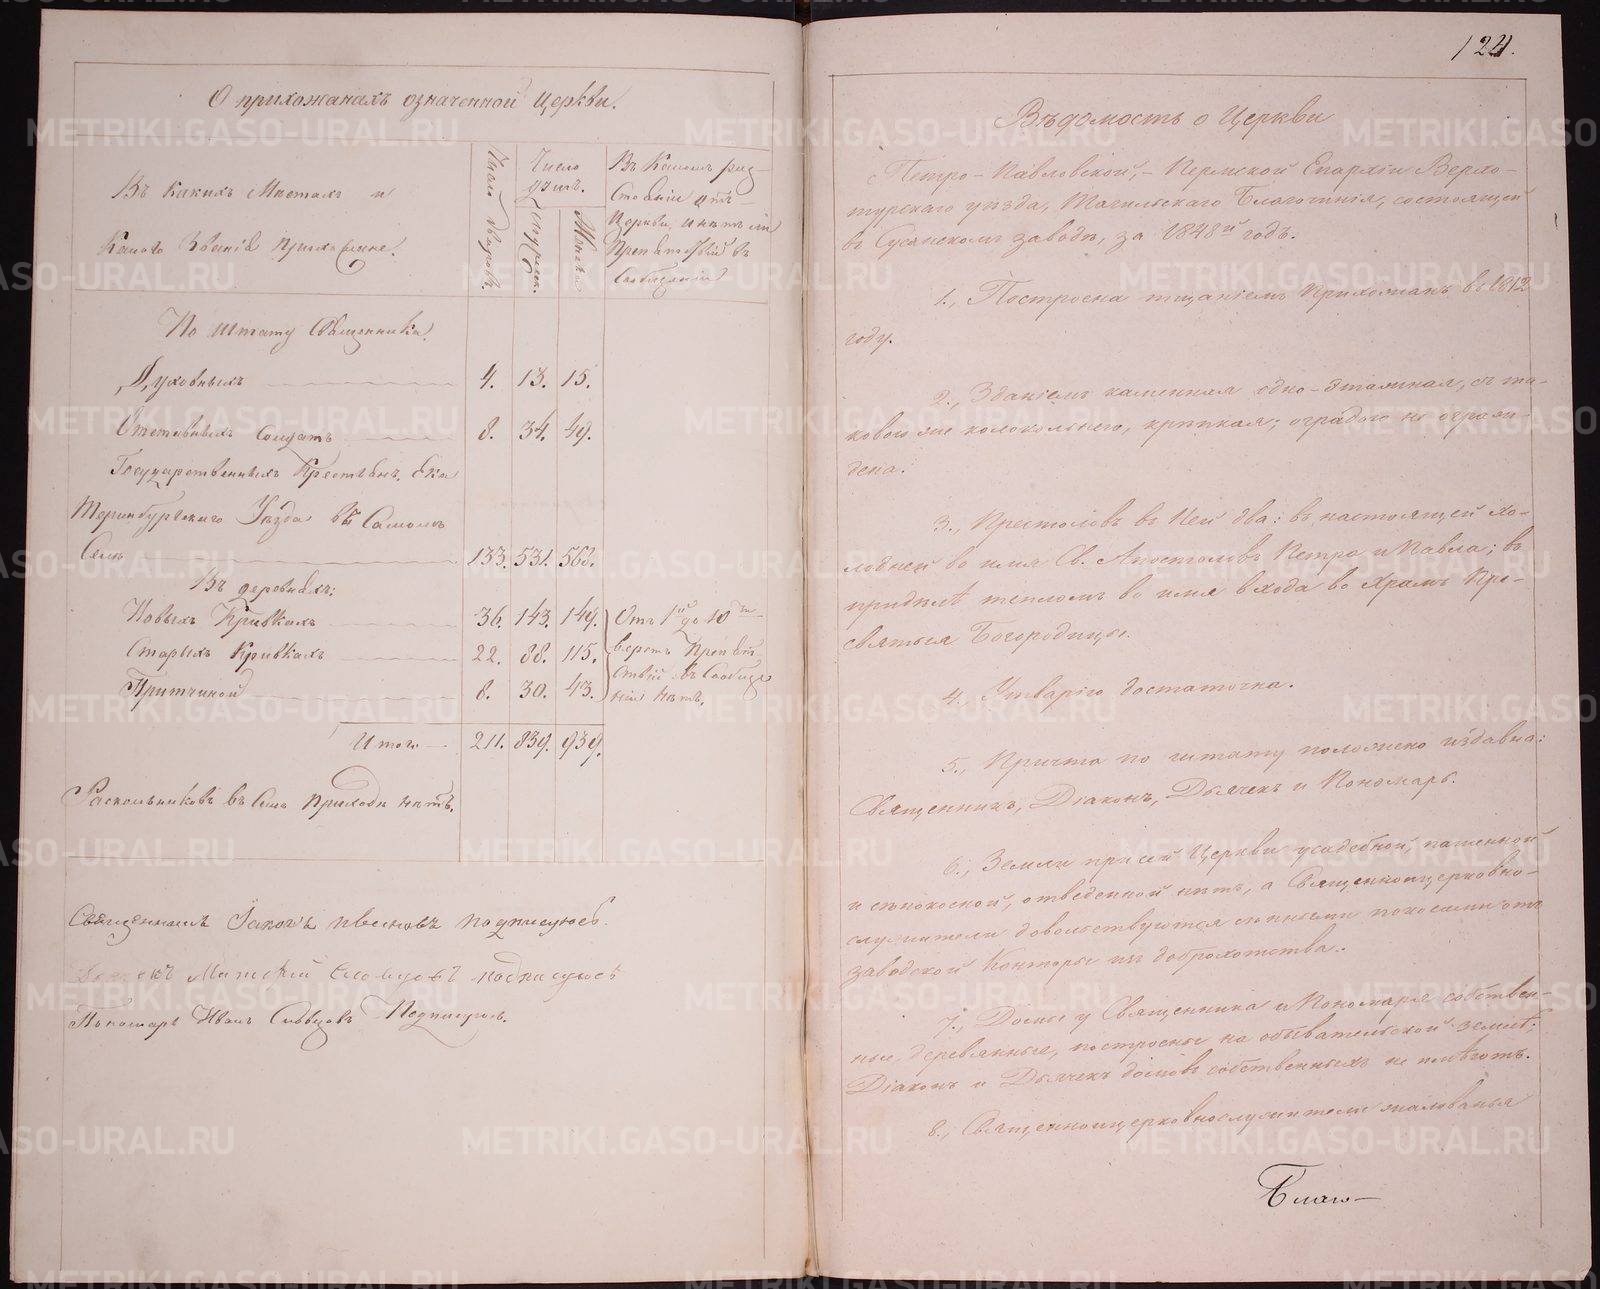 О прихожанахъ означенной Церкви.
Въ какихъ Мѣстахъ и
Какого Званія прихожане.
Число дворовъ.
Число
душъ.
Мужеск.
Женск.
Въ Какомъ раз-
стояніи отъ
Церкви, и нѣтъ ли
Препятствій въ
Сообщеніи
По штату Священника.
Духовныхъ 4. 13. 15.
Отставныхъ Солдатъ 8. 34. 49.
Государственныхъ Крестьянъ, Ека
теринбургскаго Уѣзда въ Самомъ
Селѣ 133. 531. 568.
Въ деревняхъ:
Новыхъ Кривкахъ 36. 143. 149.
Старыхъ Кривкахъ 22. 88. 115.
Притчиной 8. 30. 43.
Отъ 1й до 10ти
верстъ Препят-
ствій въ Сообще
ніи нѣтъ.
Итого 211. 839. 939.
Раскольниковъ въ Семъ приходѣ нѣтъ.
Священникъ Іаковъ подписуюсь.
подписуюсь
Пономарь Иванъ Словцовъ Подписуюсь.
124.
Вѣдомость о Церкви
Петро-Павловской, Пермской Епархіи Верхо-
турскаго уѣзда, Тагильскаго Благочинія, состоящей
въ Сусанскомъ заводѣ, за 1848й годъ.
1., Построена тщаніемъ Прихожанъ въ 1812
году.
2., Зданіемъ каменная одно-этажная, съ та-
ковою же колокольнею, крѣпкая; оградою не огражи-
дена.
3., Престоловъ въ Ней два: въ настоящей хо-
лодней во имя Св. Апостоловъ Петра и Павла; въ
придѣлѣ тепломъ во имя входа во Храмъ Пре-
святыя Богородицы.
4., Утварію достаточна.
5., Причта по штату положено издавна:
Священникъ, Діаконъ, Дьячекъ и Пономарь.
6., Земли при сей Церкви усадебной, пашенной
и сѣнокосной, отведенной нѣтъ, а Священноцерковно-
служители довольствуются сѣнными покосами отъ
заводской Конторы изъ доброхотства.
7., Домы у Священника и Пономаря собствен-
ные, деревянные, построены на обывательской землѣ;
Діаконъ и Дьячекъ домовъ собственныхъ не имѣютъ.
8., Священноцерковнослужители жалованья
Благо-
METRIKI.GASO-URAL.RU